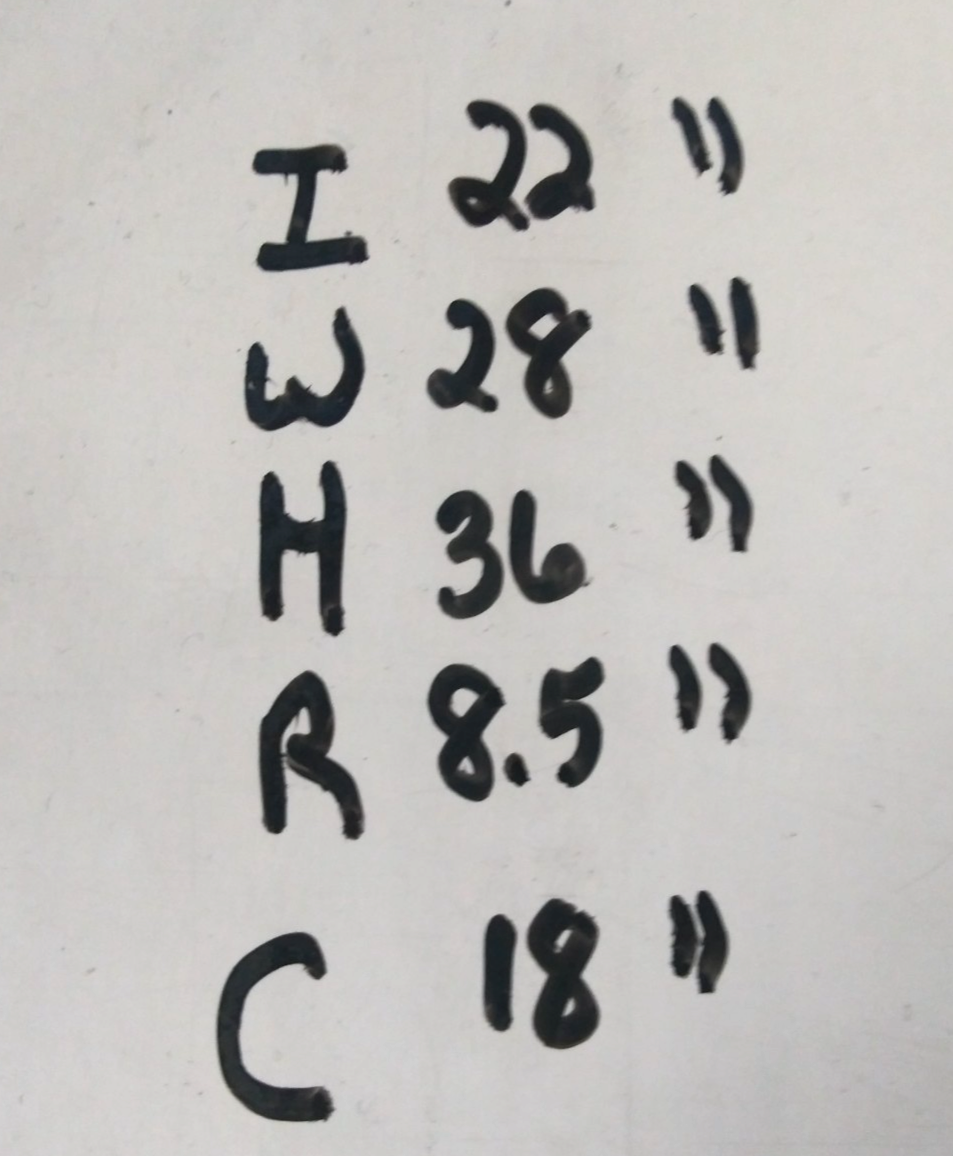 I 22"
W 28"
H 36"
R 8.5"
C 18"